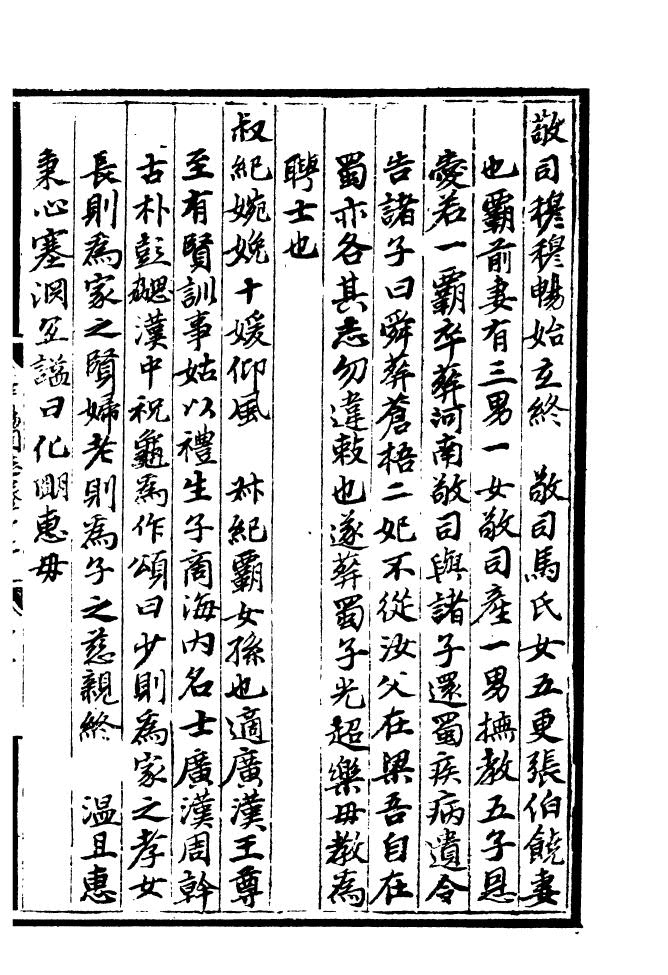 敬司穆穆暢始立終　敬司馬氏女五更張伯饒妻
也霸前妻有三男一女敬司產一男撫教五子恩
愛若一霸卒葬河南敬司與諸子還蜀疾病遺令
告諸子曰舜葬蒼梧二妃不從汝父在梁吾自在
蜀亦各其志勿違敕也遂葬蜀子光超樂毋教為
聘士也
叔紀婉娩十媛仰風　叔紀霸女孫也適廣漢王尊
至有賢訓事姑以禮生子商海內名士廣漢周幹
古朴彭勰漢中祝龜為作頌曰少則為家之孝女
長則為家之賢婦老則為子之慈親終　溫且惠
秉心塞淵宜諡曰化明惠毋